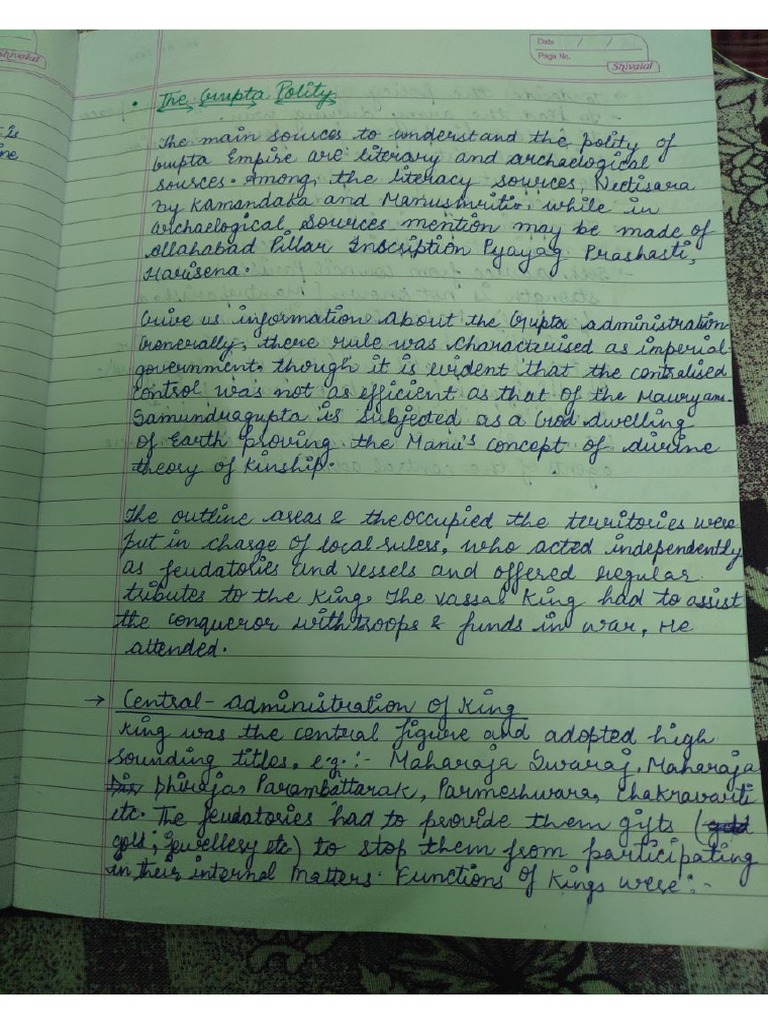 Shivalal
Date / /
Page No.
Shivalal
• The Gupta Polity
The main sources to understand the polity of
Gupta Empire are literary and archaelogical
sources. Among, the literacy sources, Neetisara
by Kamandaka and Manusmriti, while in
archaelogical sources mention may be made of
Allahabad Pillar Inscription Pyayag Prashasti,
Harisena.
Give us information about the Gupta administration
Generally, there rule was characterised as imperial
government, though it is evident that the centralised
control was not as efficient as that of the Mauryans.
Samundragupta is subjected as a God dwelling
of Earth proving the Manu's concept of divine
theory of Kinship.
The outline areas & the occupied the territories were
put in charge of local rulers, who acted independently
as feudatories and vessels and offered regular
tributes to the King. The vassal King had to assist
the conqueror with troops & funds in war, He
attended.
→ Central - administration of King
King was the central figure and adopted high
sounding titles. e.g. :- Maharaja Swaraj, Maharaja
Dhiraja, Parambattarak, Parmeshwara, Chakravarti
etc. The feudatories had to provide them gifts (
gold, jewellery etc) to stop them from participating
in their internal matters. Functions of Kings were :-